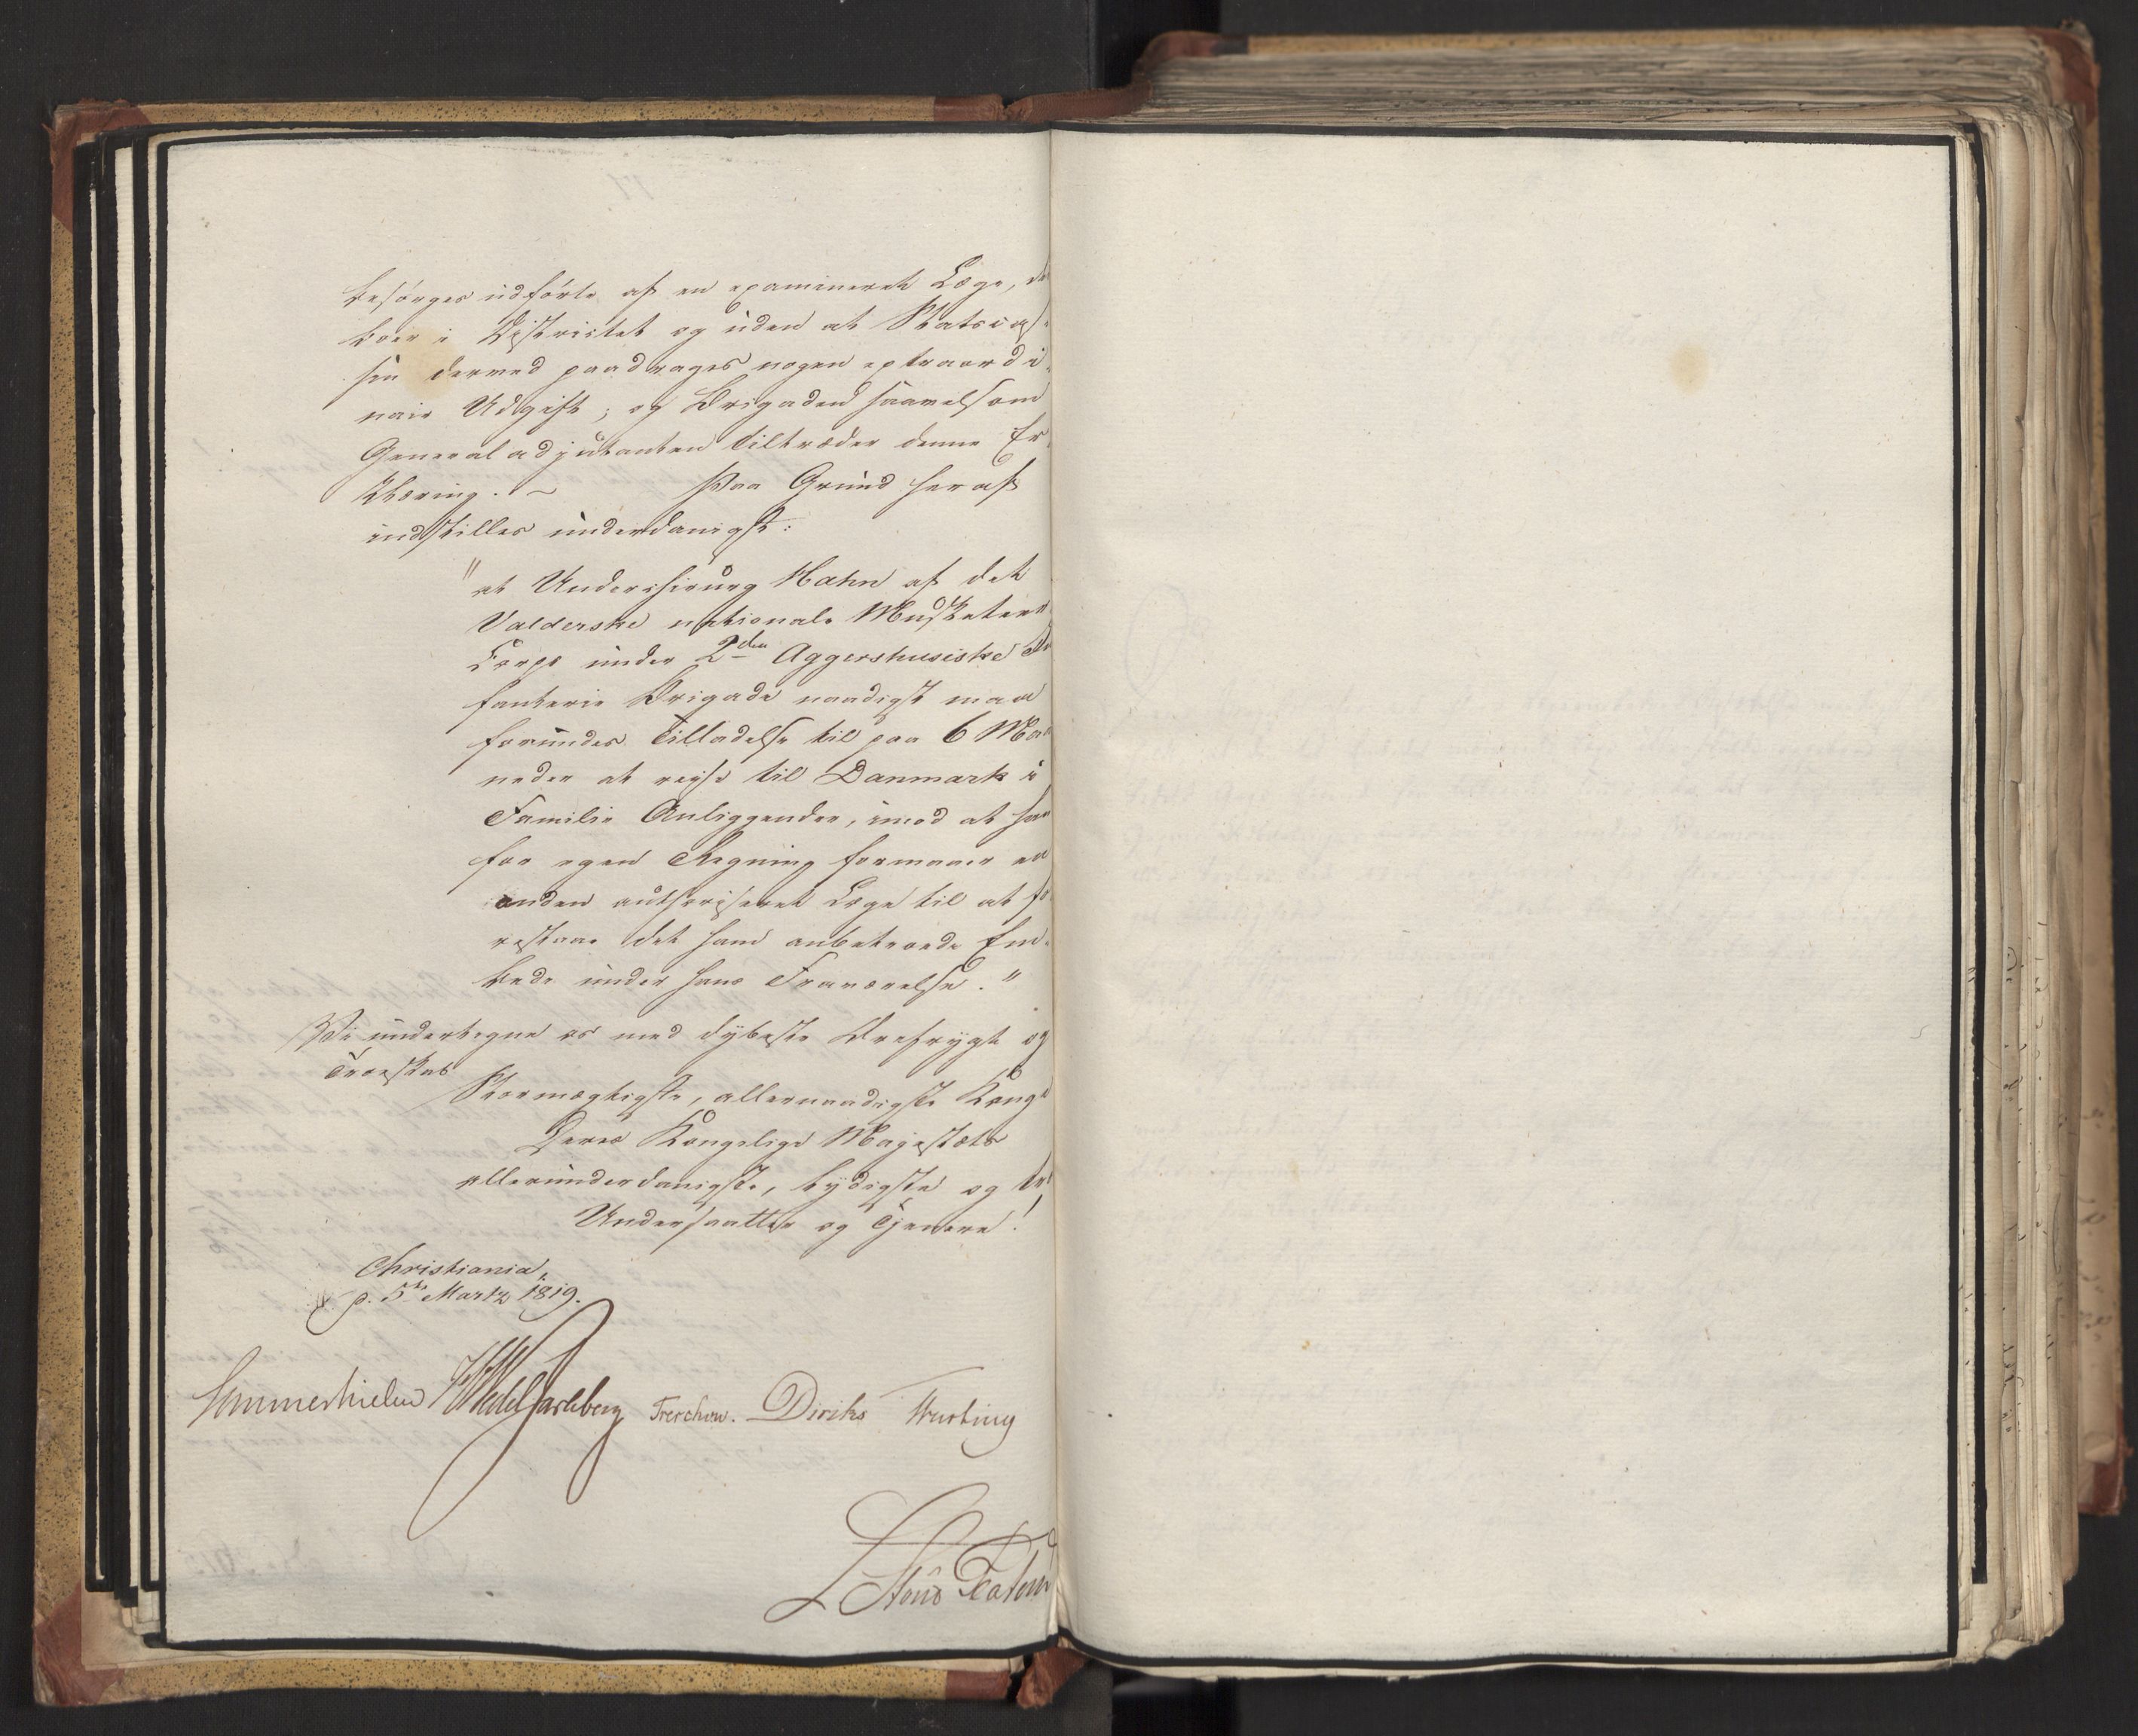 besörges udförte af en examineret Læge, der
boer i Districtet og uden at Statscas-
sen derved paadrages nogen extraordi-
nair Udgift; og Brigaden saavelsom
Generaladjutanten tiltræder denne Er-
klæring. ~ Paa Grund heraf
indstilles underdanigst:
"at Underchirurg Hahn af det
Valderske nationale Musketeer
Corps under 2den Aggershusiske In
fanterie Brigade naadigst maa
forundes Tilladelse til paa 6 Maa
neder at reyse til Danmark i
Familie Anliggender, imod at han
for egen Regning formaaer en
anden authoriseret Læge til at fo
restaae det ham anbetroede Em-
bede under hans Fraværelse."
Vi undertegne os med dybeste Ærefrygt og
Troeskab
Stormægtigste, allernaadigste Konge
Deres Kongelige Majestæts
allerunderdanigste, lydigste og tro
Undersaatter og Tjenere!
Christiania,
d. 5te Martz 1819.
Sommerhielm HWedelJarlsberg Treschow. Diriks Krebting